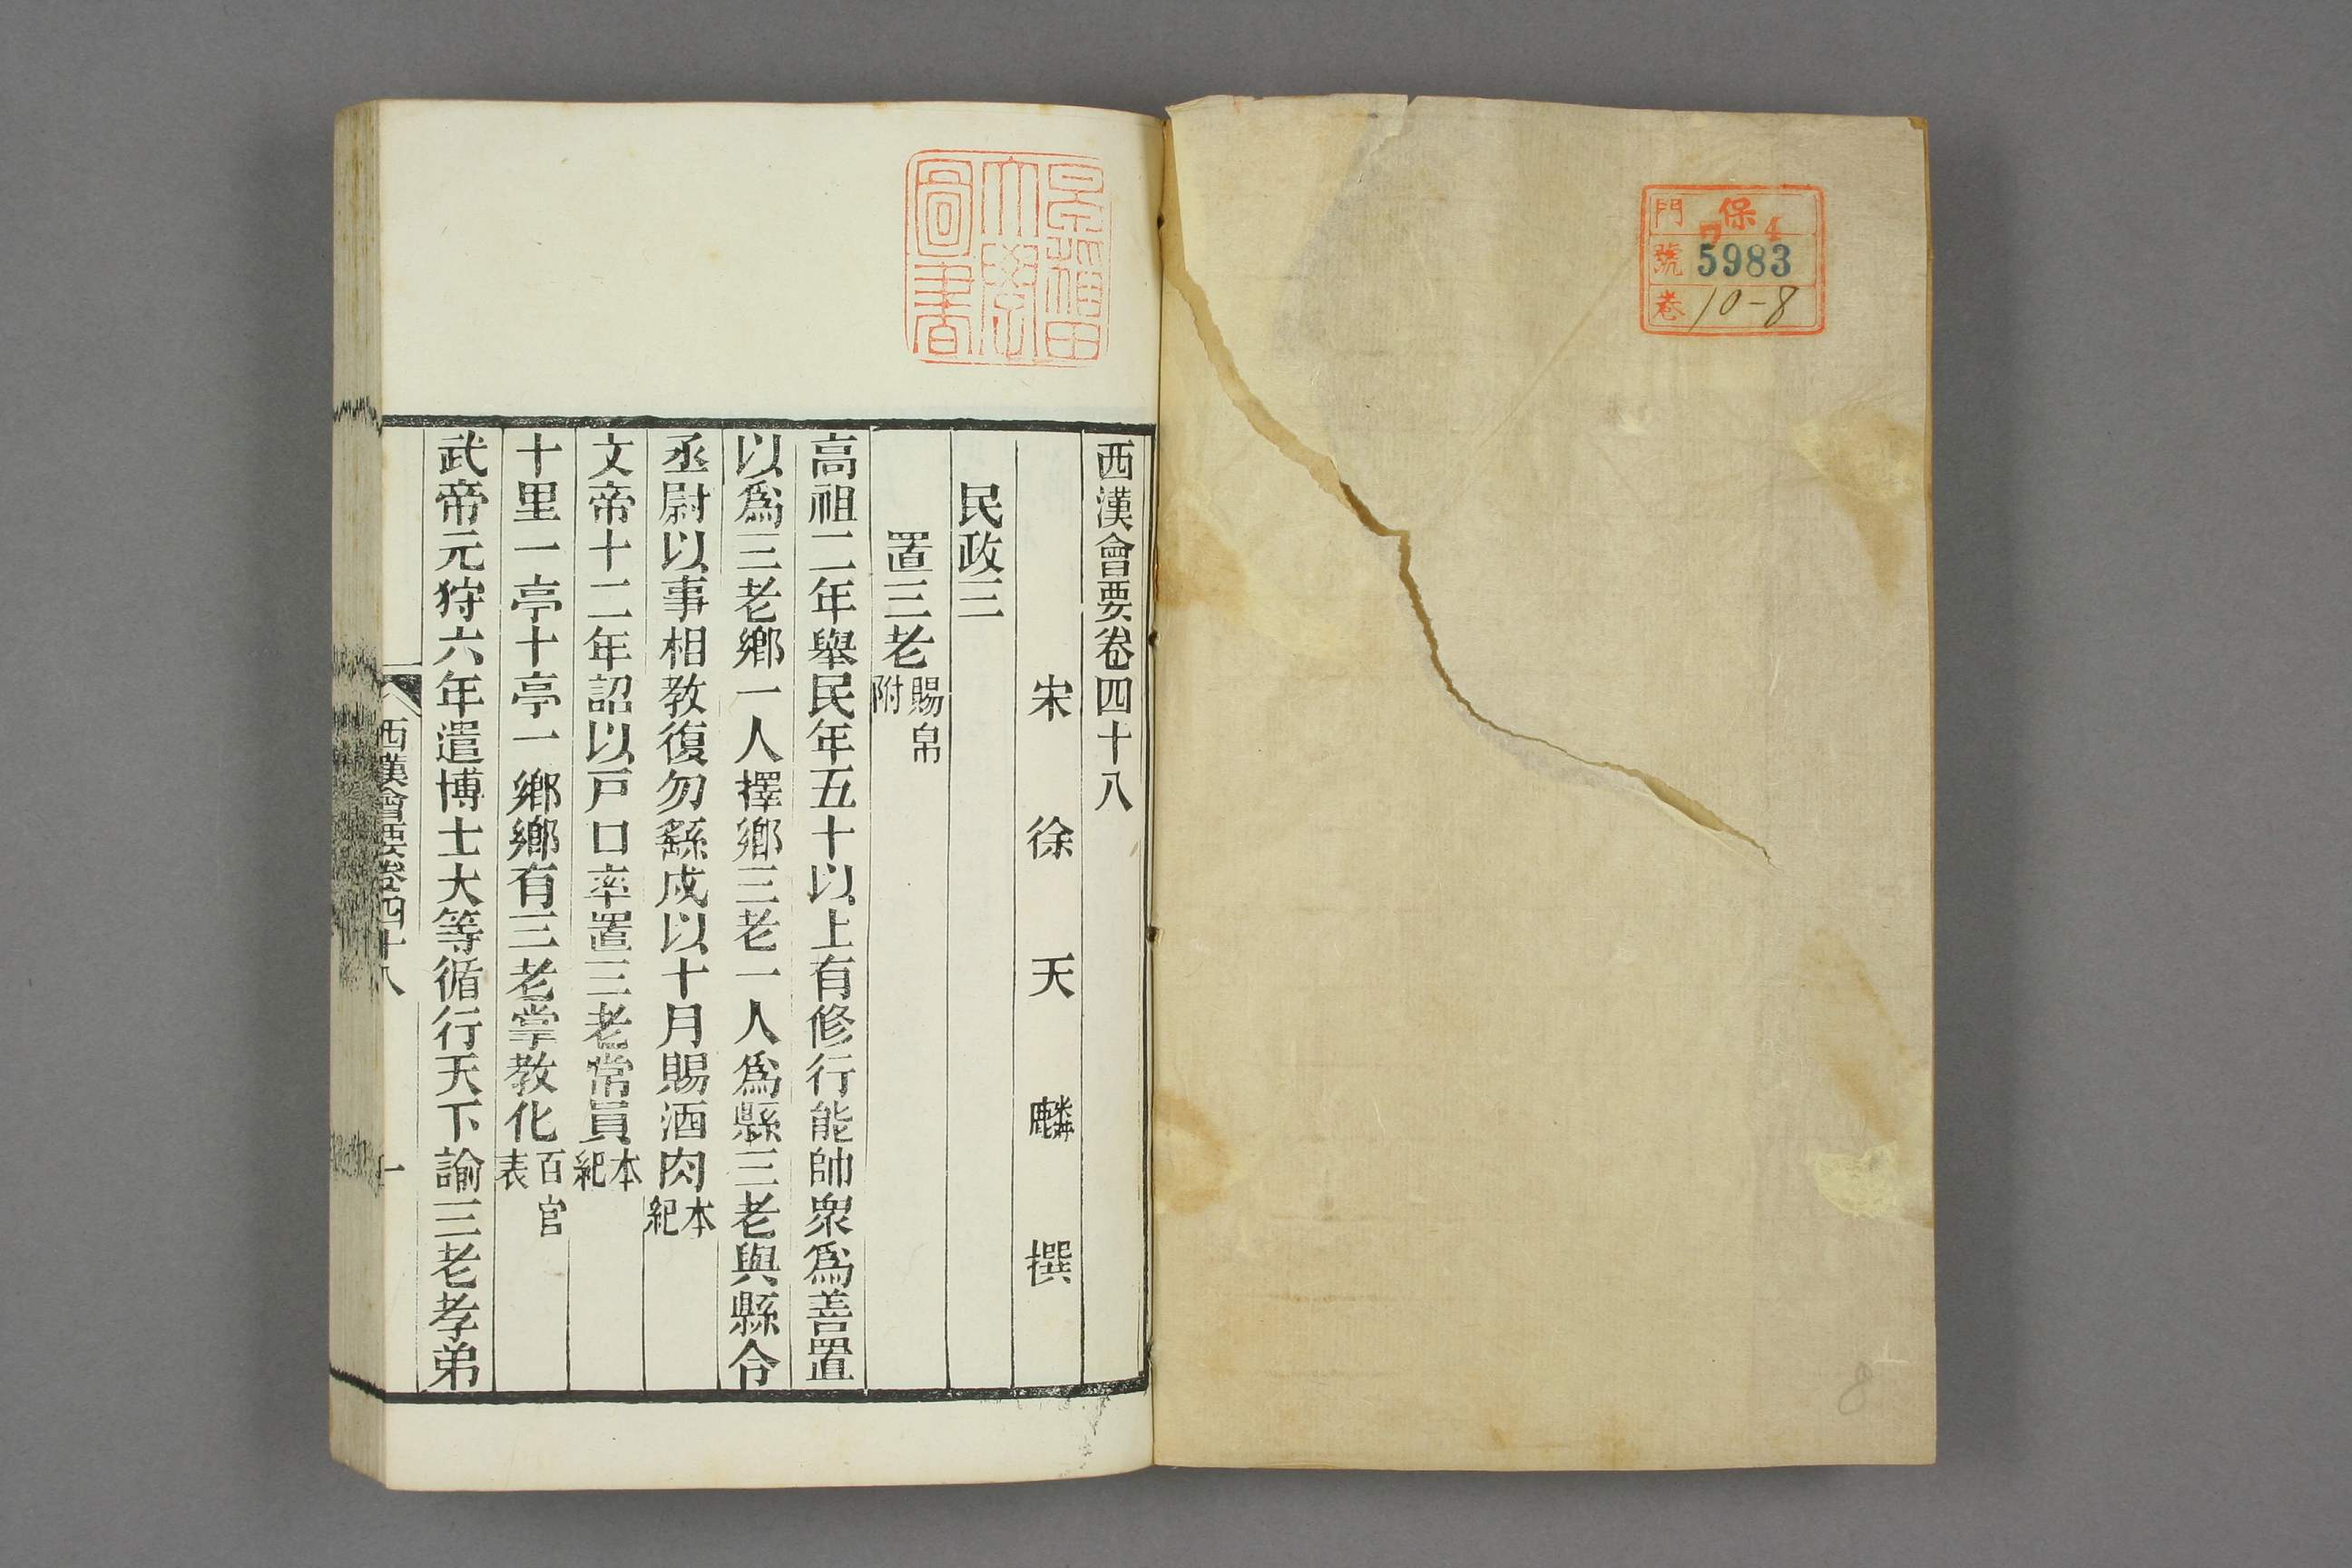 門 保 ワ 4
號 5983
卷 10-8
8
早稲田大學圖書
西漢會要卷四十八
宋徐天麟撰
民政三
置三老賜帛附
高祖二年舉民年五十以上有修行能帥衆爲善置
以爲三老鄉一人擇鄉三老一人爲縣三老與縣令
丞尉以事相教復勿繇戍以十月賜酒肉本紀
文帝十二年詔以戸口率置三老常員本紀
十里一亭十亭一鄉鄉有三老掌教化百官表
武帝元狩六年遣博士大等循行天下諭三老孝弟
西漢會要卷四十八
一